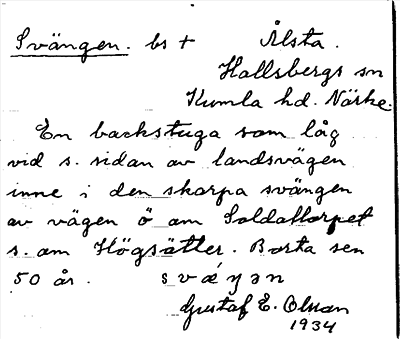 Svängen. bs + Ålsta.
Hallsbergs sn
Kumla hd. Närke.
En backstuga som låg
vid s. sidan av landsvägen
inne i den skarpa svängen
av vägen ö om Soldattorpet
s. om Högsätter. Borta sen
50 år. svǽŋən
Gustaf E. Olsson
1934